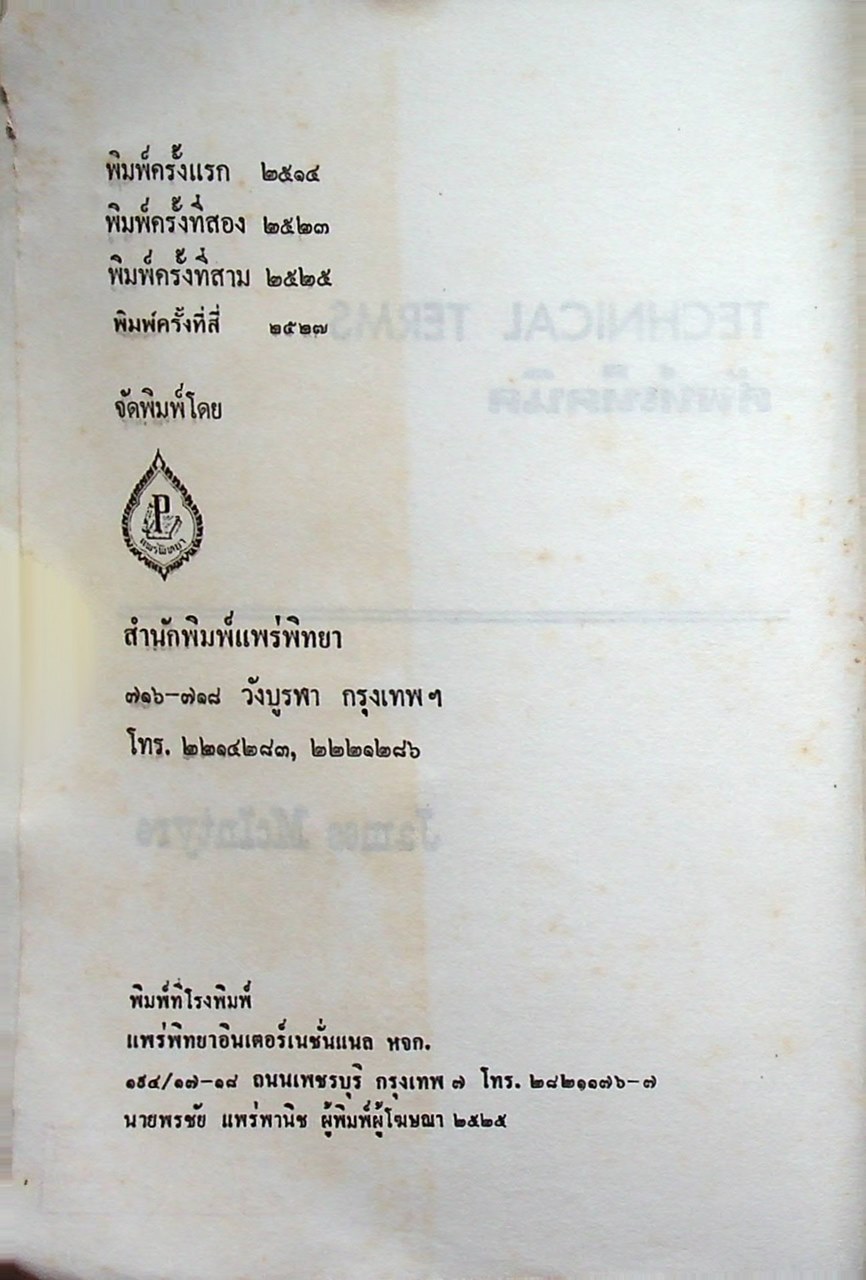 พิมพ์ครั้งแรก ๒๕๑๔
พิมพ์ครั้งที่สอง ๒๕๒๓
พิมพ์ครั้งที่สาม ๒๕๒๕
พิมพ์ครั้งที่สี่ ๒๕๒๗
จัดพิมพ์โดย
P
แพร่พิทยา
สำนักพิมพ์แพร่พิทยา
๗๑๖-๗๑๘ วังบูรพา กรุงเทพฯ
โทร. ๒๒๑๔๒๘๓, ๒๒๒๑๒๘๖
พิมพ์ที่โรงพิมพ์
แพร่พิทยาอินเตอร์เนชั่นแนล หจก.
๑๙๔/๑๗-๑๘ ถนนเพชรบุรี กรุงเทพ ๗ โทร. ๒๘๒๑๑๗๖-๗
นายพรชัย แพร่พานิช ผู้พิมพ์ผู้โฆษณา ๒๕๒๕
TECHNICAL TERMS
ศัพท์เทคนิค
James McIntyre